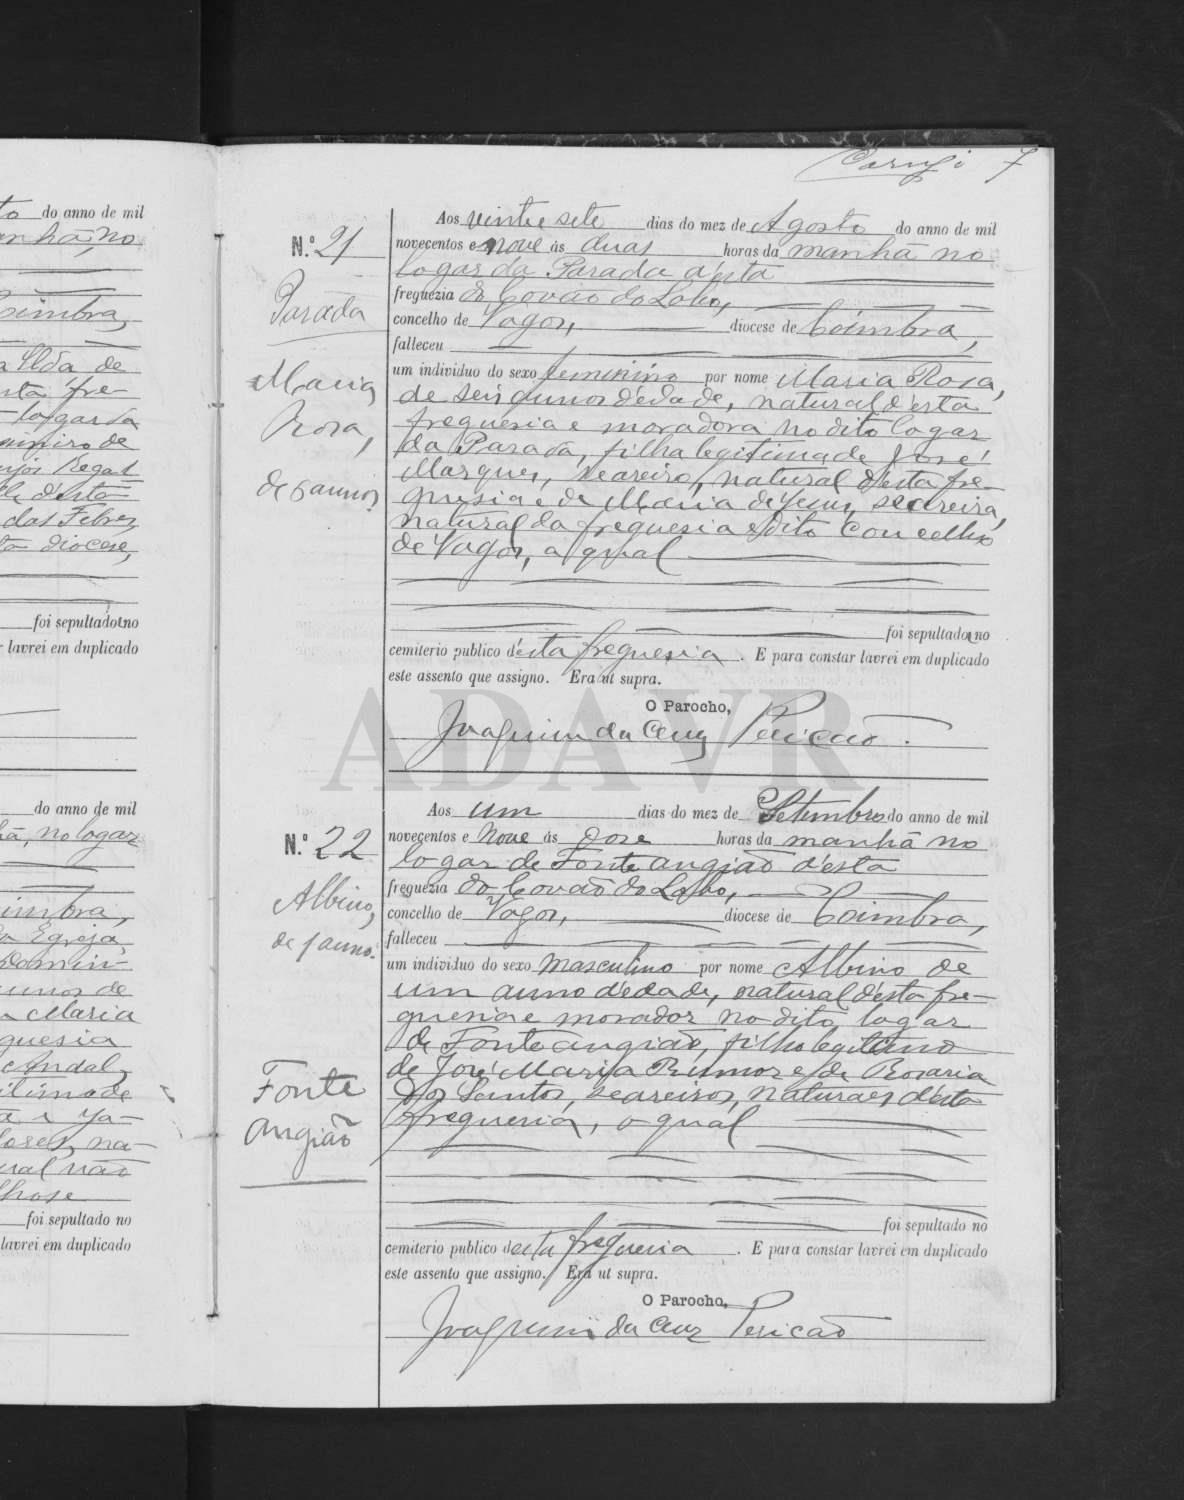 7
to do anno de mil
nhã, no
Coimbra,
Ilda de
sta fre-
logar da
das Febres
ta diocese,
foi sepultado no
r lavrei em duplicado
N.º 21
Parada
Maria
Rosa,
de 6 annos
Aos vinte e sete dias do mez de Agosto do anno de mil
novecentos e nove ás duas horas da manhã no
logar da Parada d'esta
freguezia do Covão do Lobo,
concelho de Vagos, diocese de Coimbra,
falleceu
um individuo do sexo feminino por nome Maria Rosa,
de seis annos d'edade, natural d'esta
freguesia e moradora no dito logar
da Parada, filha legitima de José
Marques, seareiro, natural d'esta fre-
guesia e de Maria de Jesus, seareira,
natural da freguesia e dito concelho
de Vagos, a qual
foi sepultada no
cemiterio publico d'esta freguesia. E para constar lavrei em duplicado
este assento que assigno. Era ut supra.
O Parocho,
Joaquim da Cruz Pericão.
ADAVR
do anno de mil
hã, no logar
imbra,
da Egreja,
Domin-
annos de
Maria
guesia
foi sepultado no
lavrei em duplicado
N.º 22
Albino,
de 1 anno.
Fonte
Angião
Aos um dias do mez de Setembro do anno de mil
novecentos e nove ás doze horas da manhã no
logar de Fonte angião d'esta
freguezia do Covão do Lobo,
concelho de Vagos, diocese de Coimbra,
falleceu
um individuo do sexo masculino por nome Albino de
um anno d'edade, natural d'esta fre-
guesia e morador no dito logar
de Fonte angião, filho legitimo
de José Maria Rumor e de Rosaria
dos Santos, seareiros, naturaes d'esta
freguesia, o qual
foi sepultado no
cemiterio publico d'esta freguesia. E para constar lavrei em duplicado
este assento que assigno. Era ut supra.
O Parocho,
Joaquim da Cruz Pericão